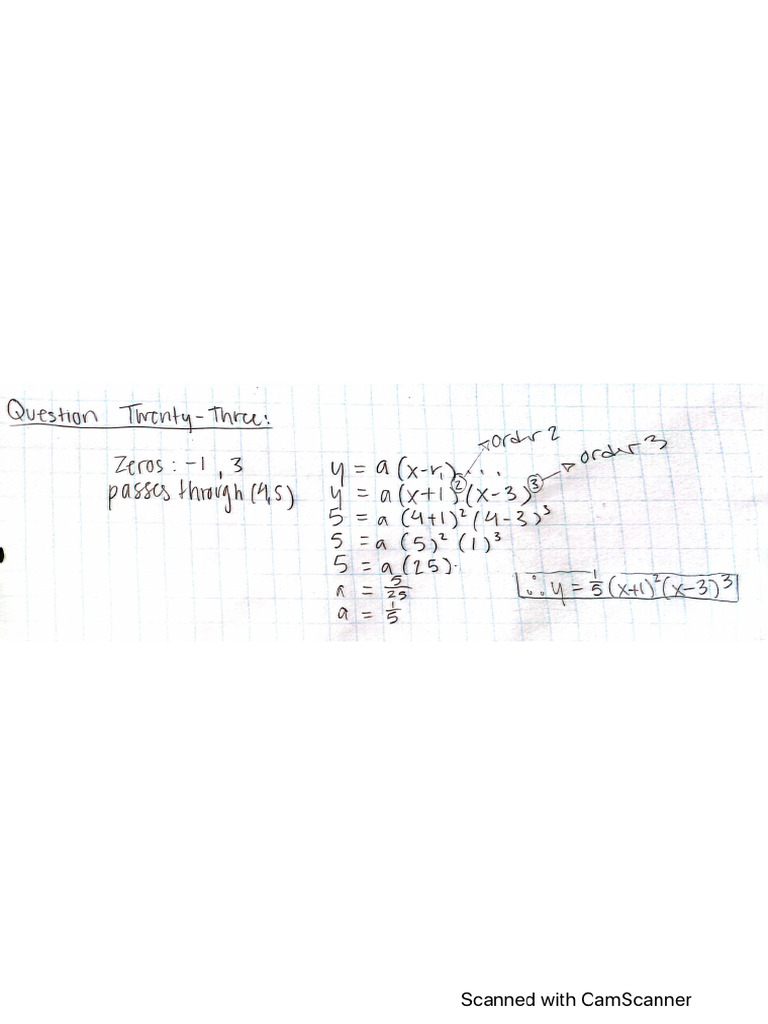 Question Twenty-Three:
Zeros: -1, 3
passes through (4,5)
y = a(x-r₁)...
y = a(x+1)²(x-3)³
order 2
order 3
5 = a(4+1)²(4-3)³
5 = a(5)²(1)³
5 = a(25).
a = 5/25
a = 1/5
∴ y = 1/5(x+1)²(x-3)³
Scanned with CamScanner